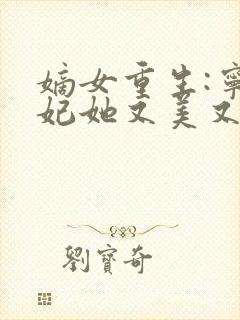 嫡女重生:寧
妃她又美又
劉寶奇